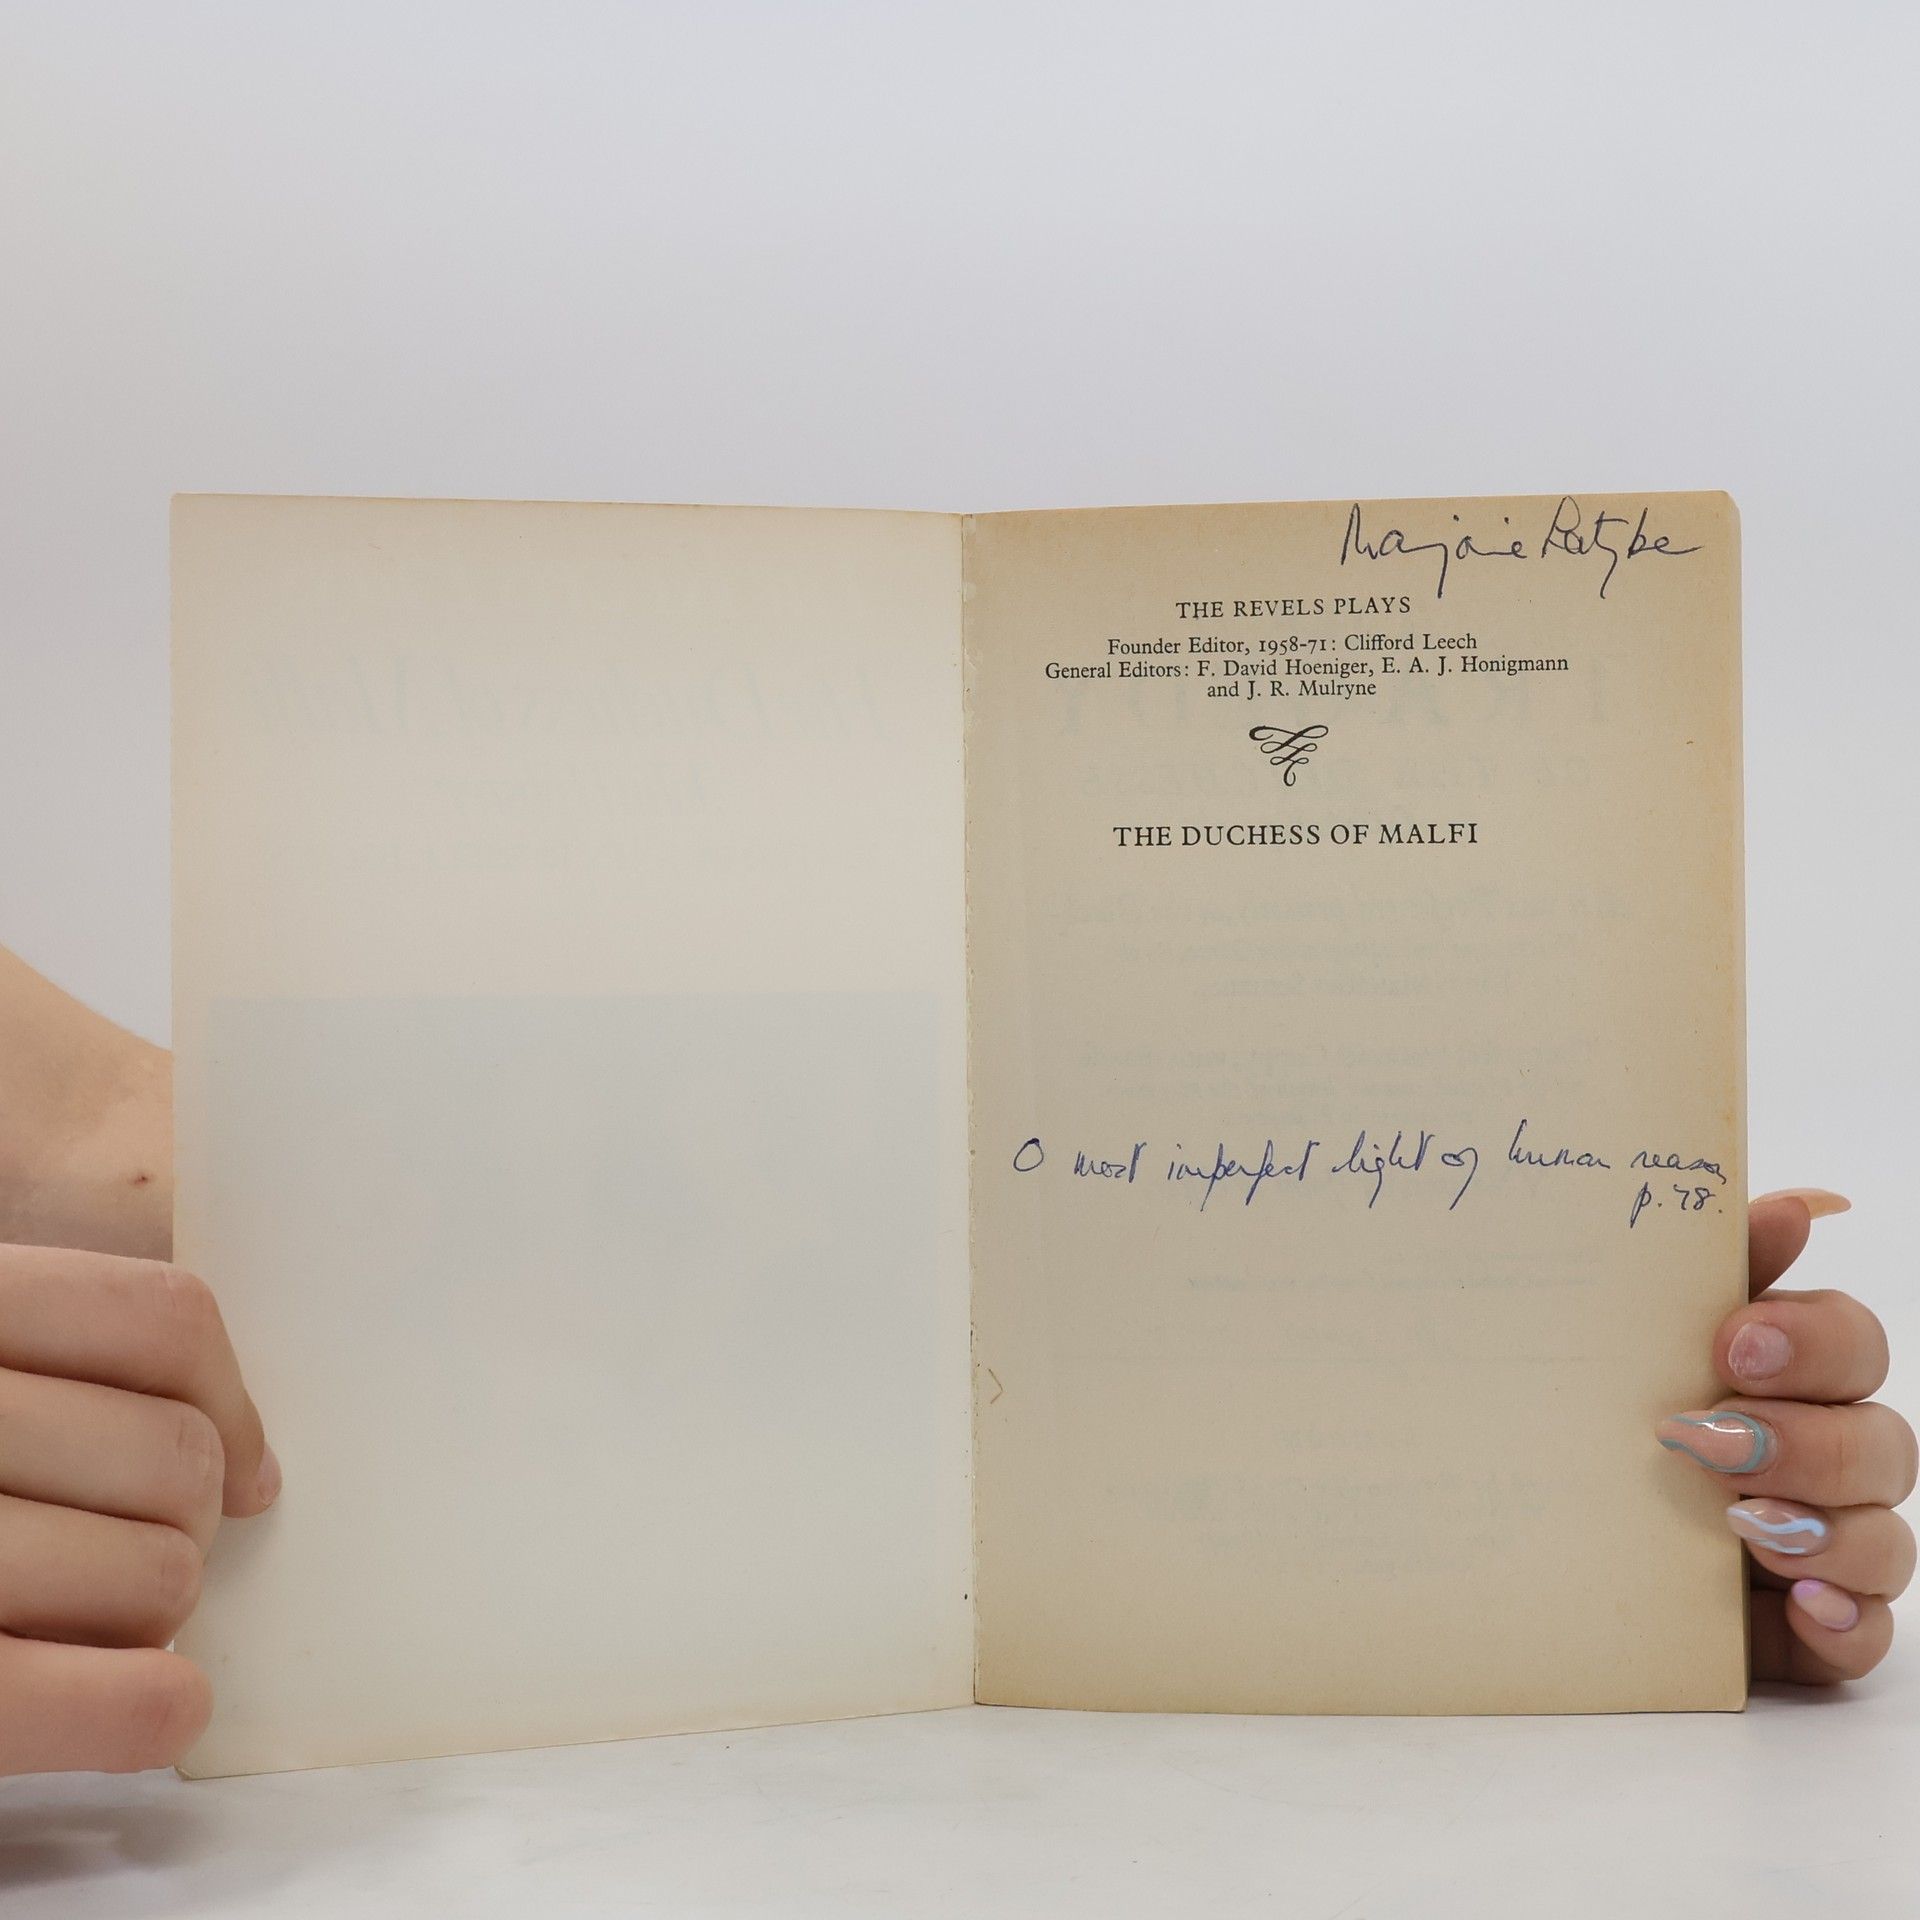 Marjorie
THE REVELS PLAYS
Founder Editor, 1958-71: Clifford Leech
General Editors: F. David Hoeniger, E. A. J. Honigmann
and J. R. Mulryne
THE DUCHESS OF MALFI
O most imperfect light of human reason
p. 78.